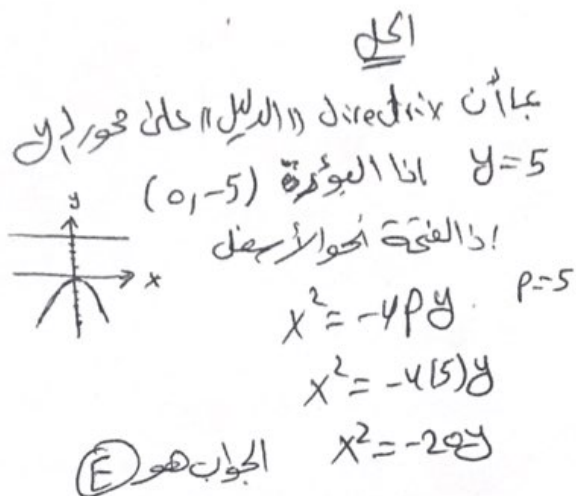 الحل
بما أن directrix "الدليل" على محور y
y=5 اذا البؤرة (0,-5)
اذا الفتحة نحو الأسفل
y
x
x²=-4py p=5
x²=-4(5)y
x²=-20y
الجواب هو E